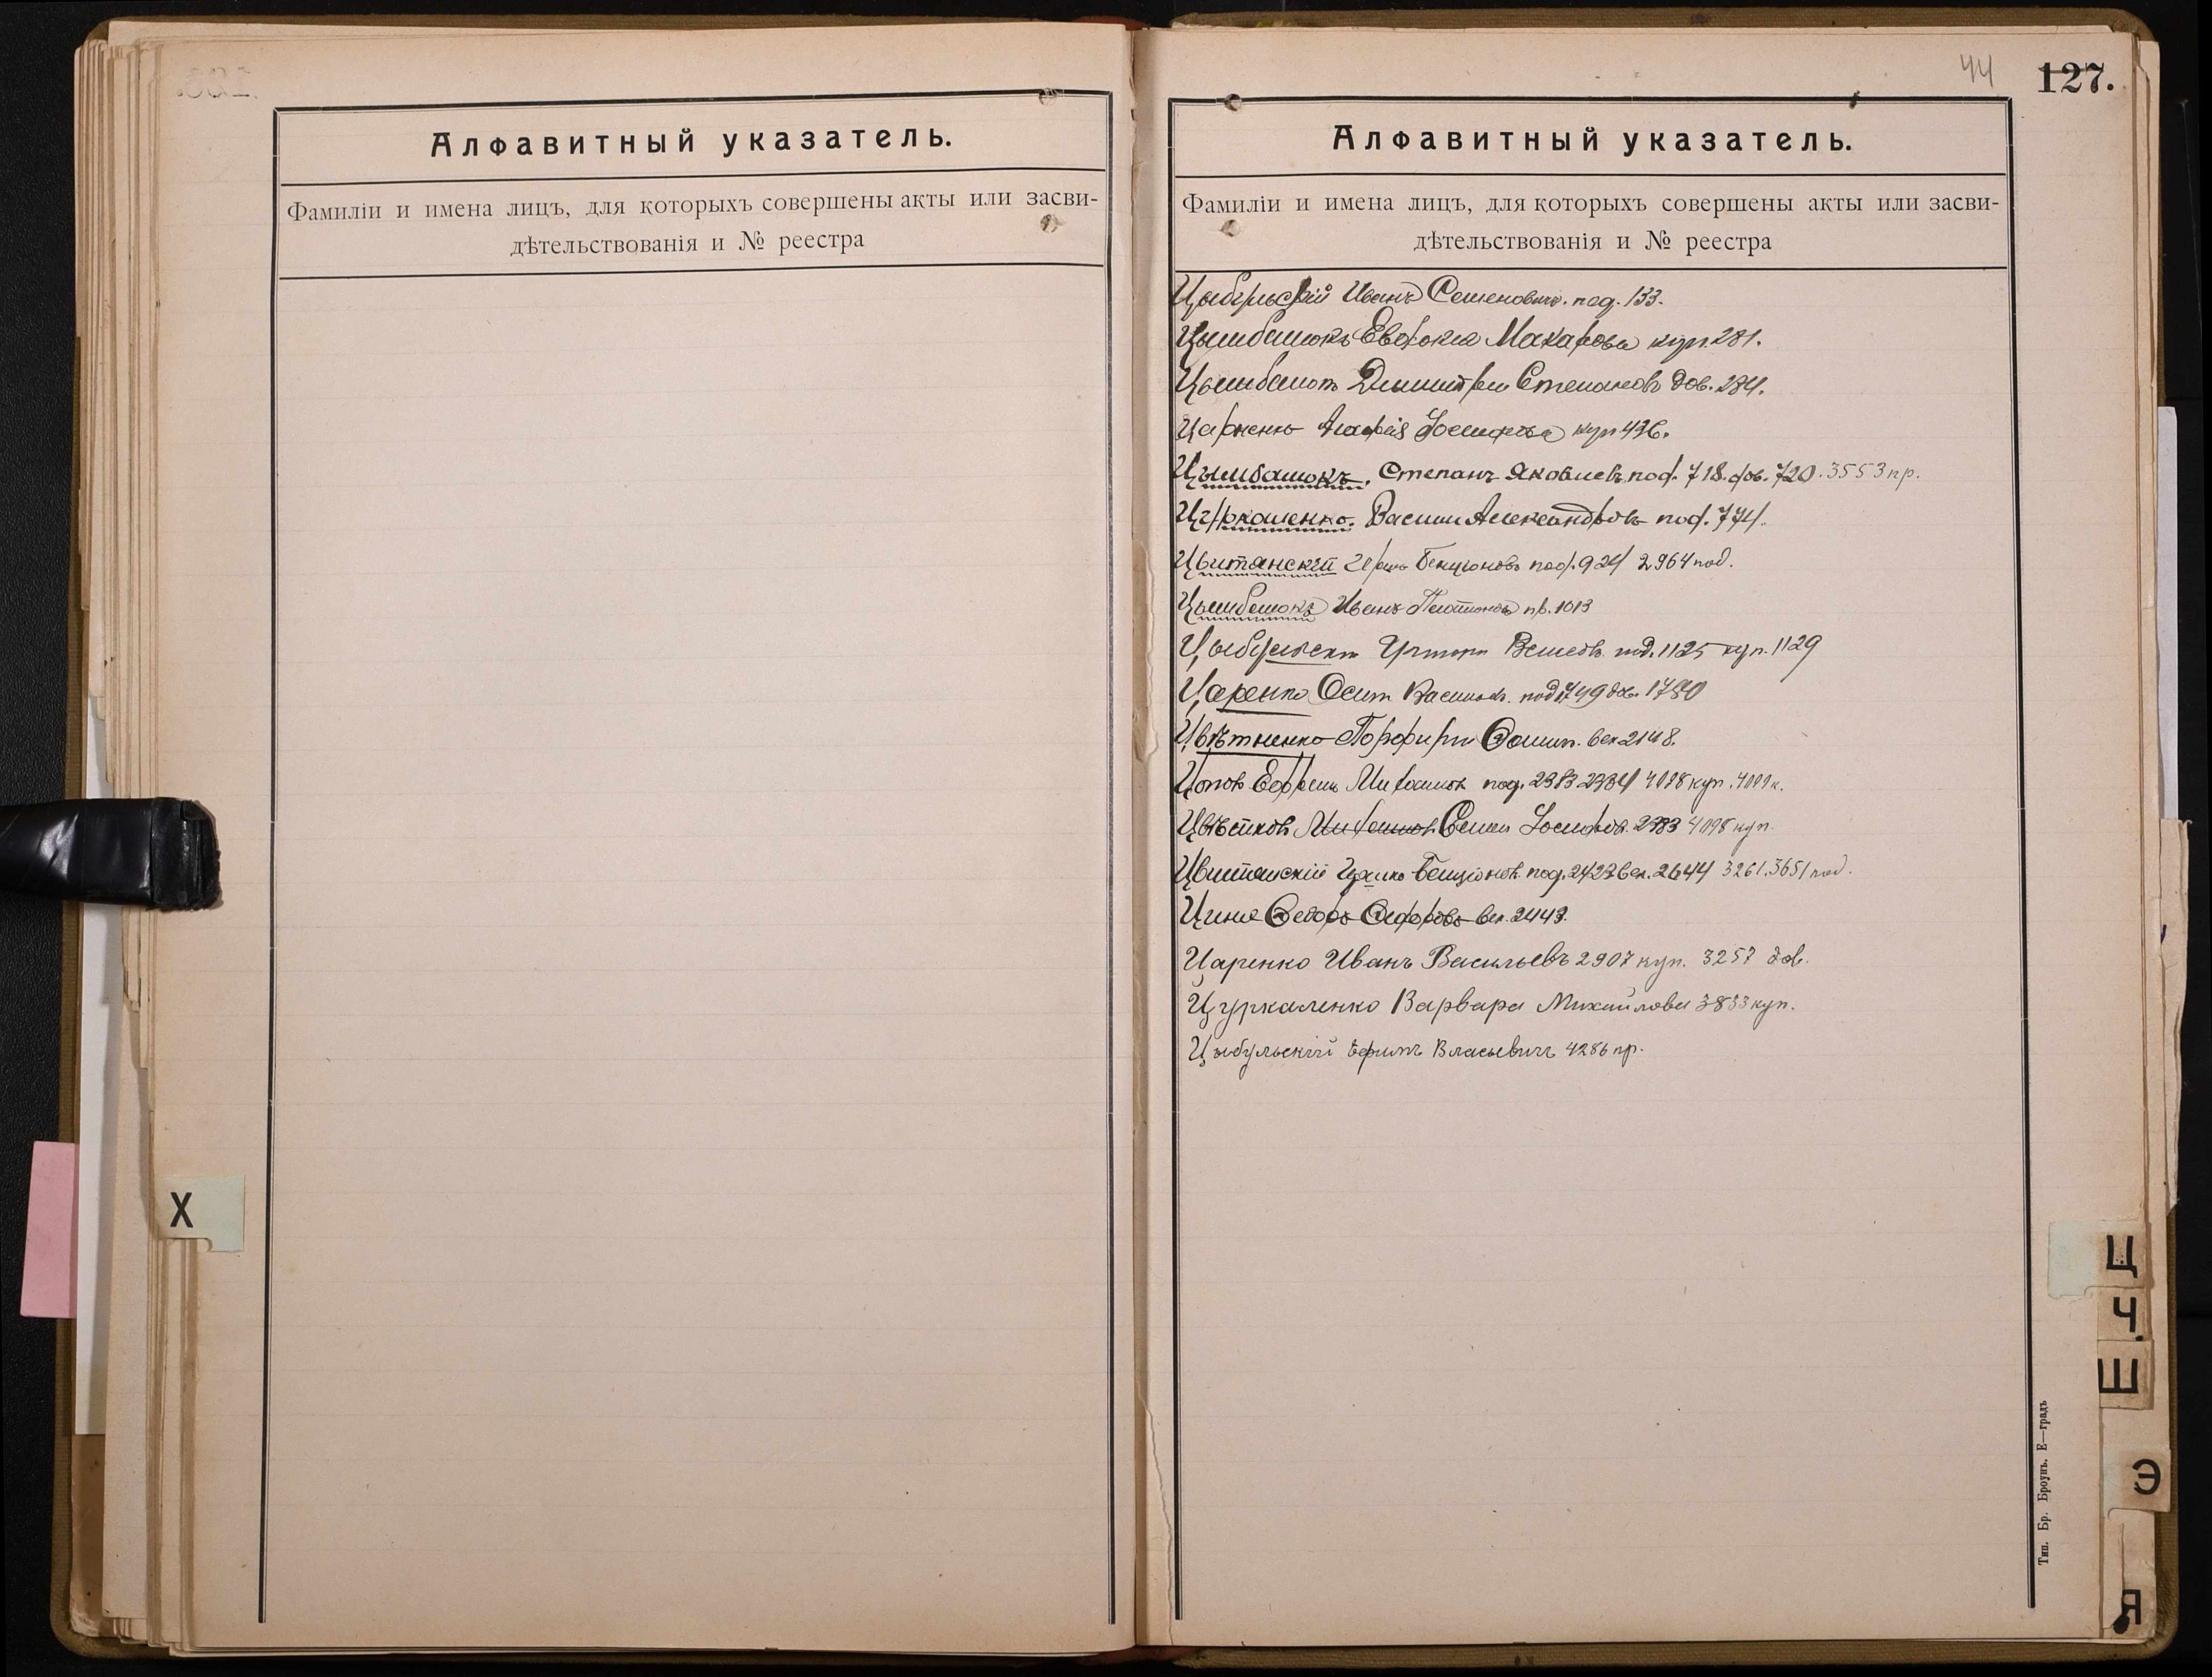 Алфавитный указатель.
Фамиліи и имена лицъ, для которыхъ совершены акты или засви-
дѣтельствованія и № реестра
Х
44
127.
Алфавитный указатель.
Фамиліи и имена лицъ, для которыхъ совершены акты или засви-
дѣтельствованія и № реестра
Цыбульскій Иванъ Семеновичъ. под. 133.
Цымбалюкъ Евдокія Макарова куп. 281.
Цымбалюкъ Димитрій Степановъ дов. 284.
Іосифова куп 436.
Цымбалюкъ, Степанъ Яковлевъ, под. 718. дов. 720. 3553 пр.
Цуркаленко. Василій Александровъ под. 774.
Цвитанскій Бенціоновъ под. 924 2964 под.
Цымбалюкъ Иванъ Платоновъ пр. 1013
под. 1125 куп. 1129
Царенко Осип Васильев. под 1749 дов. 1750
Цвѣтненко Порфирій век 2148.
под. 2383 2384 4098 куп. 4099 к.
Цвѣтковъ Семен Іосифов. 2383 4098 куп.
Цвитанскій Бенціонов. под. 2423 век. 2644 3261. 3651 под.
Федоръ Федоровъ век. 2443.
Царенко Иванъ Васильевъ 2907 куп. 3257 дов.
Цуркаленко Варвара Михайлова 3833 куп.
Цыбульскій Ефимъ Власьевичъ 4286 пр.
Ц
Ч.
Ш
Э
Я
Тип. Бр. Броунъ. Е—градъ